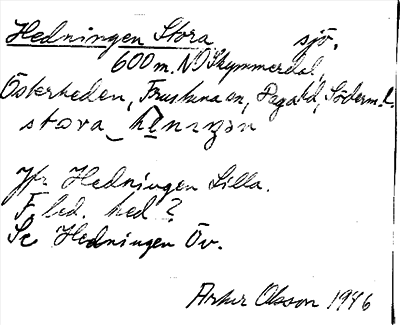 Hedningen Stora sjö.
600 m. NO Skymmerdal,
Österheden, Frustuna sn, Daga hd, Söderml.
stora heningən
Jfr Hedningen Lilla.
F led. hed?
Se Hedningen Öv.
Artur Olsson 1946